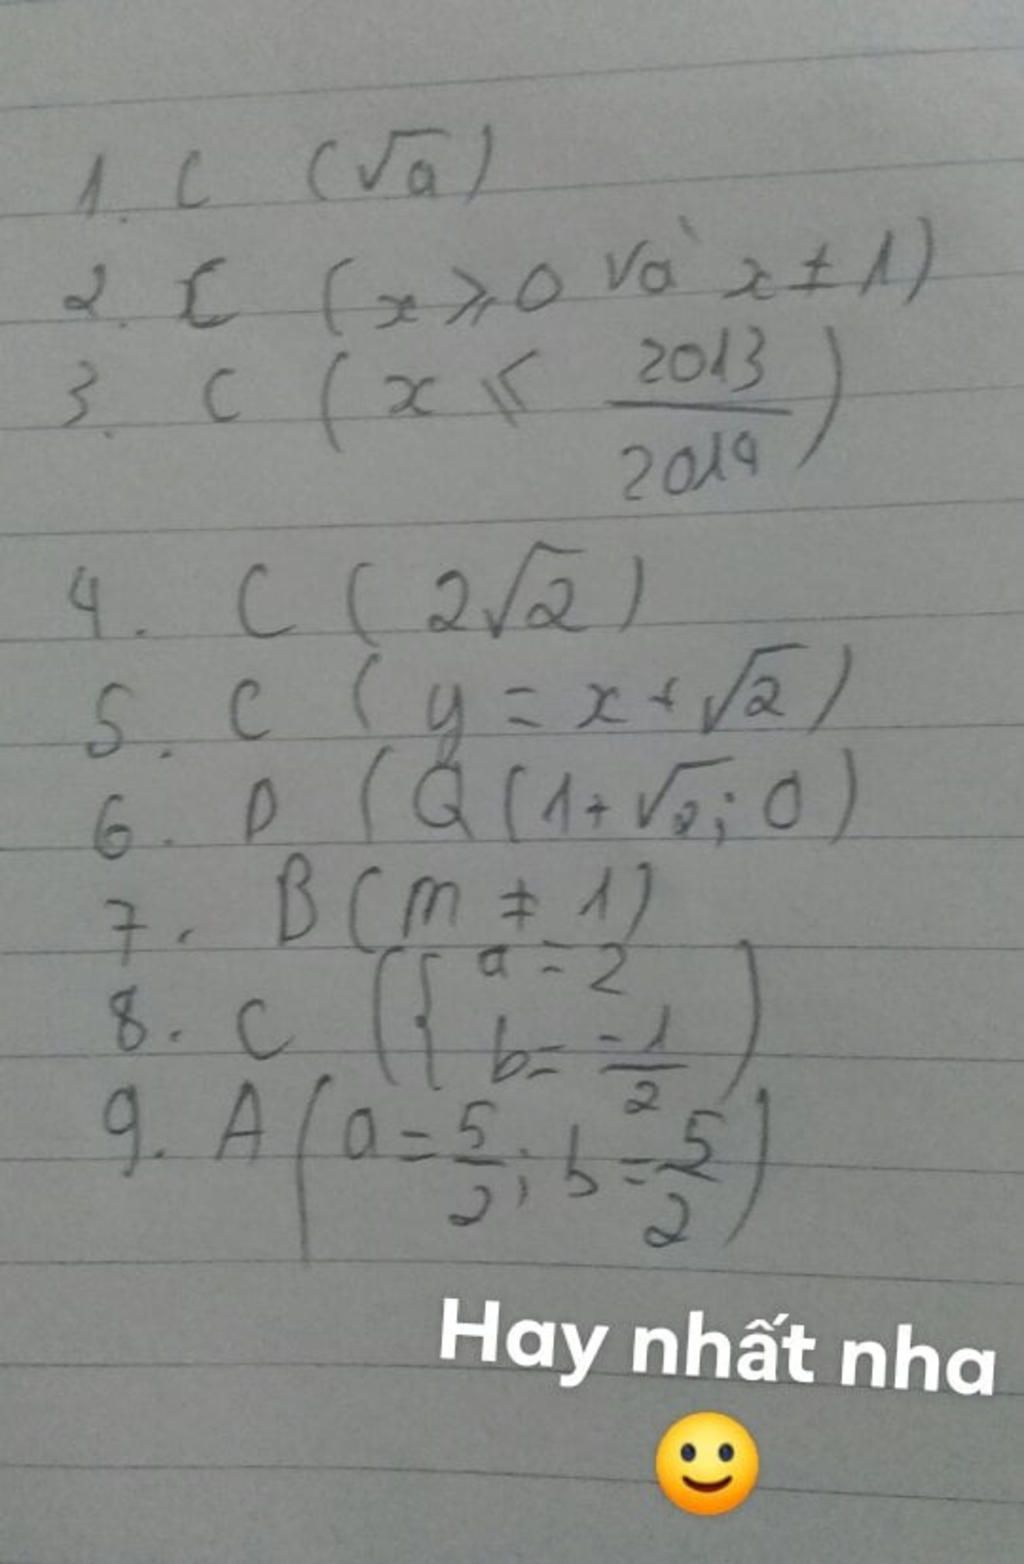 1. C (√a)
2. C (x ⩾ 0 và x ≠ 1)
3. C (x ⩽ 2013/2014)
4. C (2√2)
5. C (y = x + √2)
6. D (Q (1 + √2; 0)
7. B (m ≠ 1)
8. C ({ a = 2
b = -1/2 )
9. A (a = 5/2; b = 5/2)
Hay nhất nha
🙂